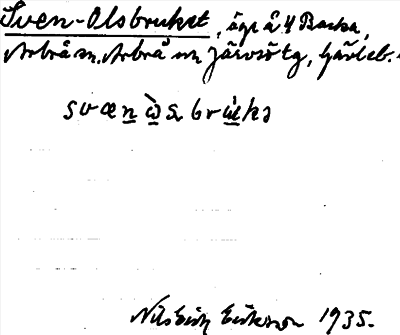 Sven-Olsbruket, äga å 4 Backa,
Arbrå sn, Arbrå m Järvsö tg, Gävleb.
svæn ɷs brʉkə
Nils Erik Eriksson 1935.